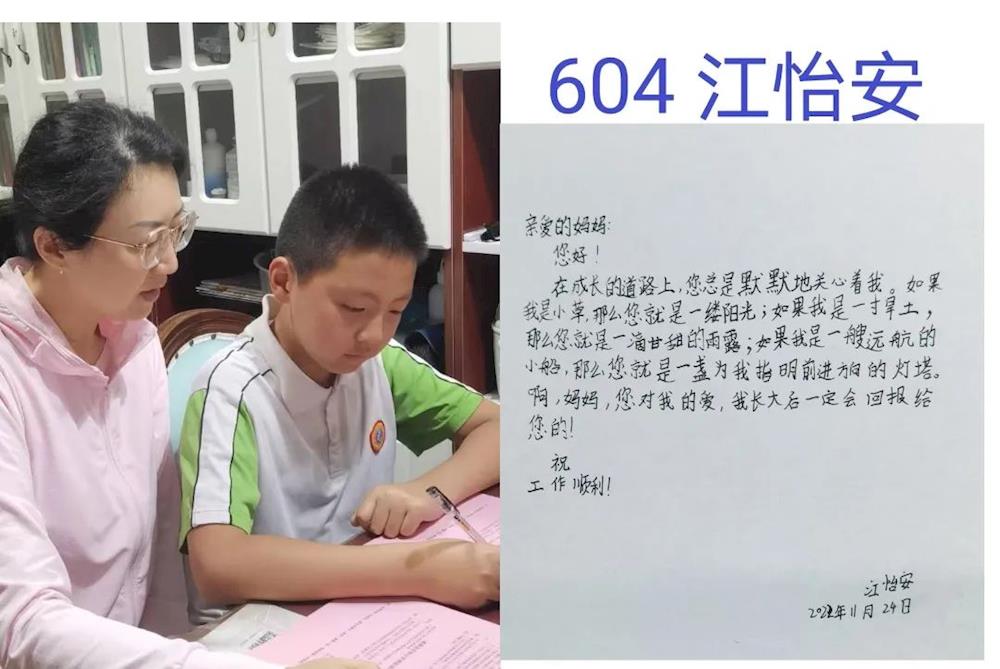 604 江怡安
亲爱的妈妈:
您好!
在成长的道路上,您总是默默地关心着我。如果
我是小草,那么您就是一缕阳光;如果我是一寸旱土,
那么您就是一滴甘甜的雨露;如果我是一艘远航的
小船,那么您就是一盏为我指明前进方向的灯塔。
啊,妈妈,您对我的爱,我长大后一定会回报给
您的!
祝
工作顺利!
江怡安
2022年11月24日